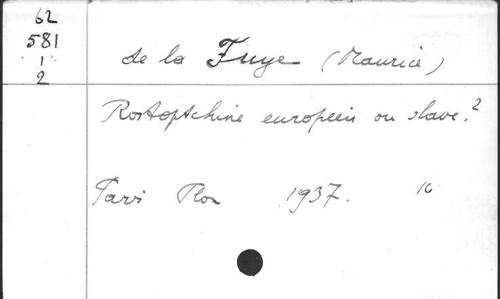 62
581
1
2
de la Fuye (Maurice)
Rostoptchine européen ou slave?
Paris Plon 1937. 16